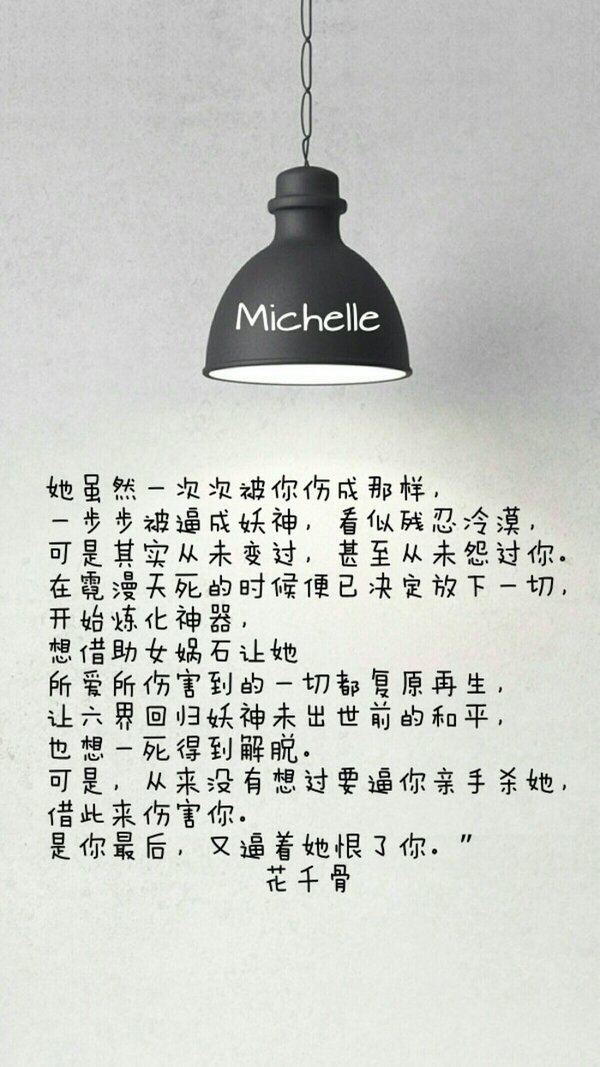 Michelle
她虽然一次次被你伤成那样，
一步步被逼成妖神，看似残忍冷漠，
可是其实从未变过，甚至从未怨过你。
在霓漫天死的时候便已决定放下一切，
开始炼化神器，
想借助女娲石让她
所爱所伤害到的一切都复原再生，
让六界回归妖神未出世前的和平，
也想一死得到解脱。
可是，从来没有想过要逼你亲手杀她，
借此来伤害你。
是你最后，又逼着她恨了你。”
花千骨